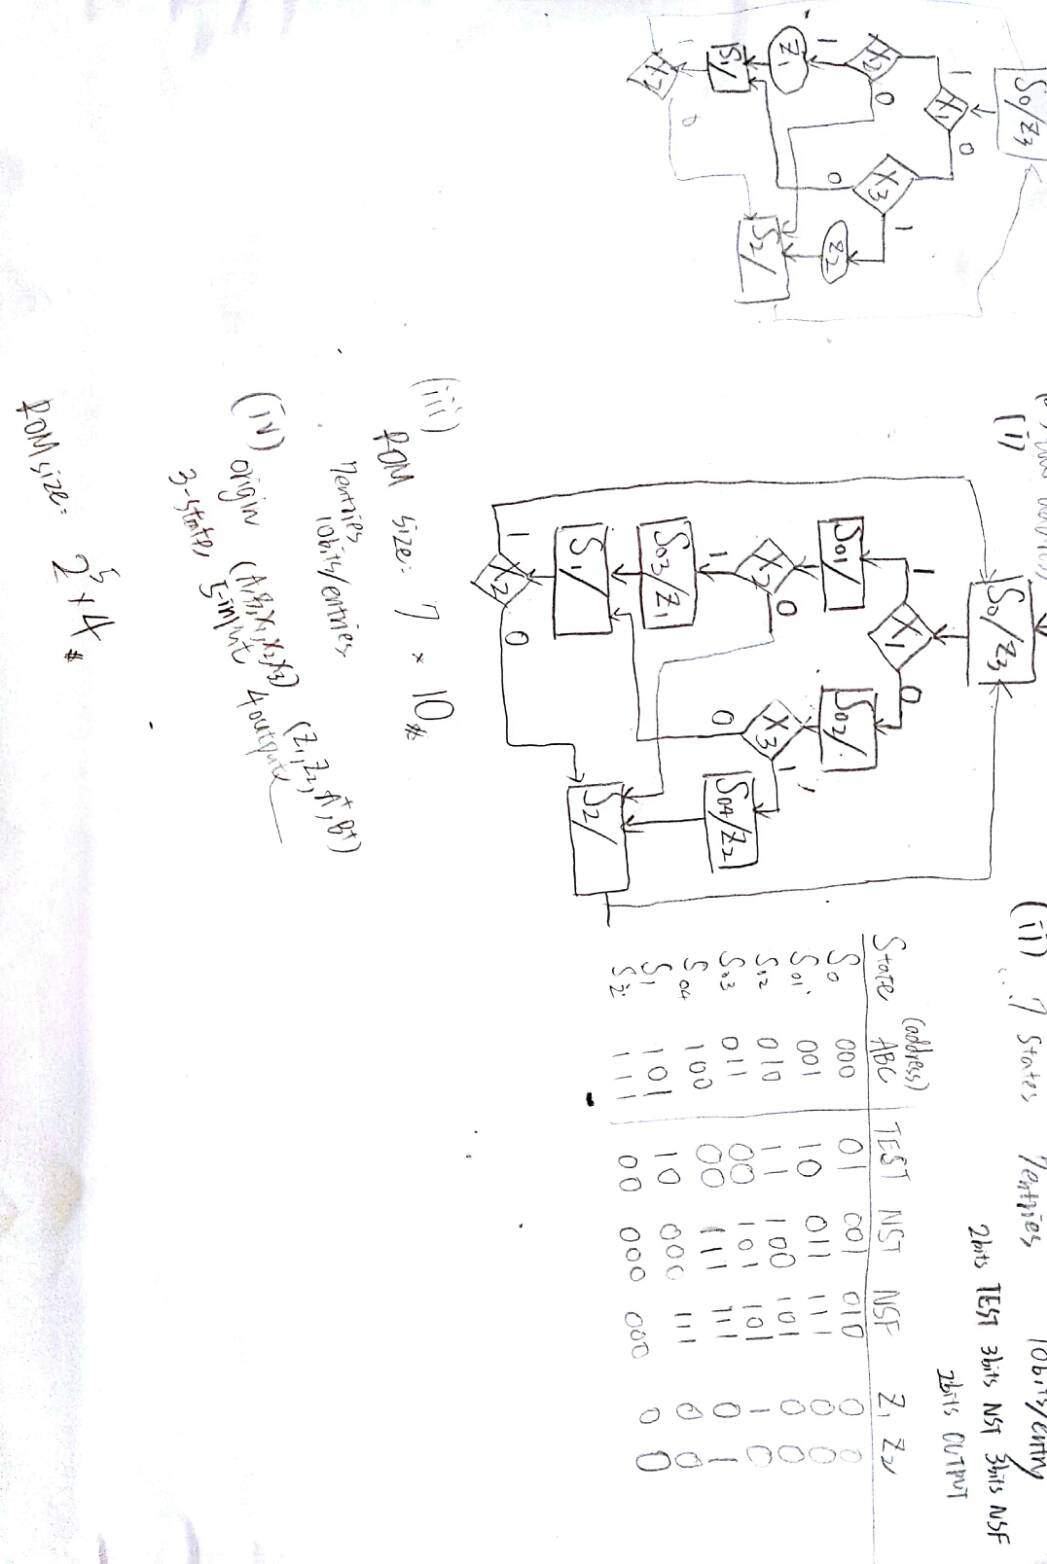 S0/Z3
X1
1
0
X2
1
0
X3
0
1
Z1
Z2
S1/
S2/
X2
1
0
(i)
S0/Z3
X1
1
0
S01/
S02/
X2
1
0
X3
0
1
S03/Z1
S04/Z2
S1/
S2/
X2
1
0
(ii) ∴ 7 states 7entries 10bits/entry
2bits TEST 3bits NST 3bits NSF
2bits OUTPUT
(address)
State ABC TEST NST NSF Z1 Z2
S0 000 01 001 010 0 0
S01 001 10 011 111 0 0
S02 010 11 100 101 0 0
S03 011 00 101 101 1 0
S04 100 00 111 111 0 1
S1 101 10 000 111 0 0
S2 111 00 000 000 0 0
(iii)
ROM size: 7 × 10 #
7entries
10bits/entries
(iv) origin (A,B,X1,X2,X3) (Z1,Z2,A⁺,B⁺)
3-state, 5-input 4outputs
ROM size: 2⁵×4 #